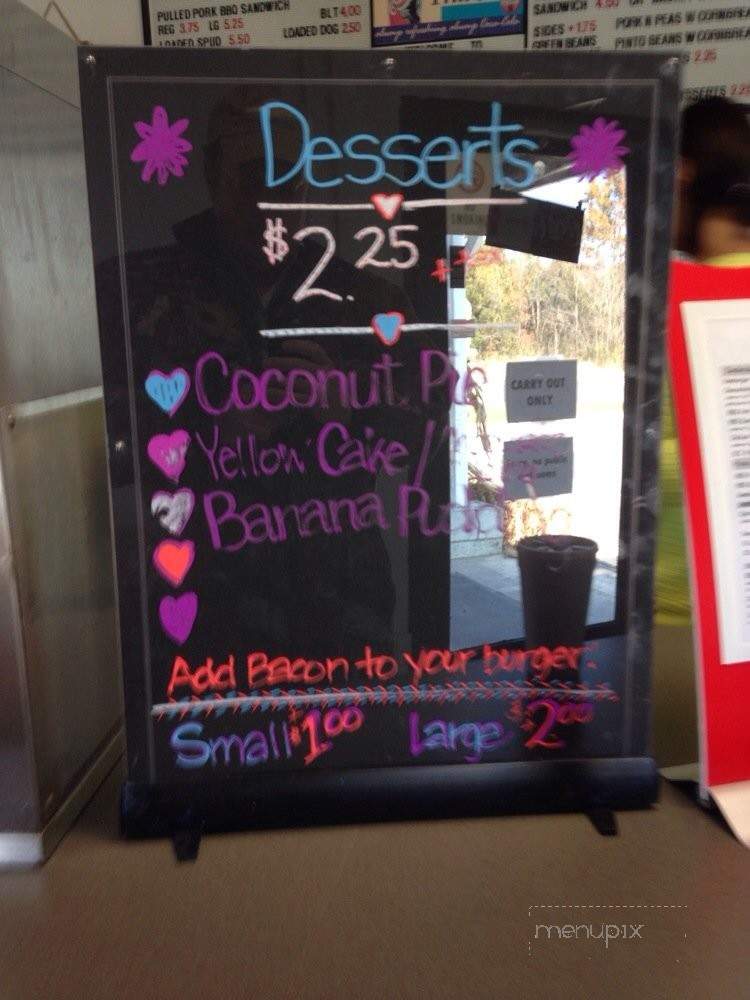 PULLED PORK BBQ SANDWICH
REG 3.75 LG 5.25
LOADED SPUD 5.50
BLT 4.00
LOADED DOG 2.50
always refreshing, always
WELCOME TO
SANDWICH 4.50
SIDES +1.75
GREEN BEANS
PORK N PEAS W CORNBREA
PINTO BEANS W CORNBREA
2.25
Desserts
$2.25
Coconut Pie
Yellow Cake /
Banana Pudding
CARRY OUT
ONLY
no public
SMOKING
Add Bacon to your burger:
Small $1.00 Large $2.00
menupix